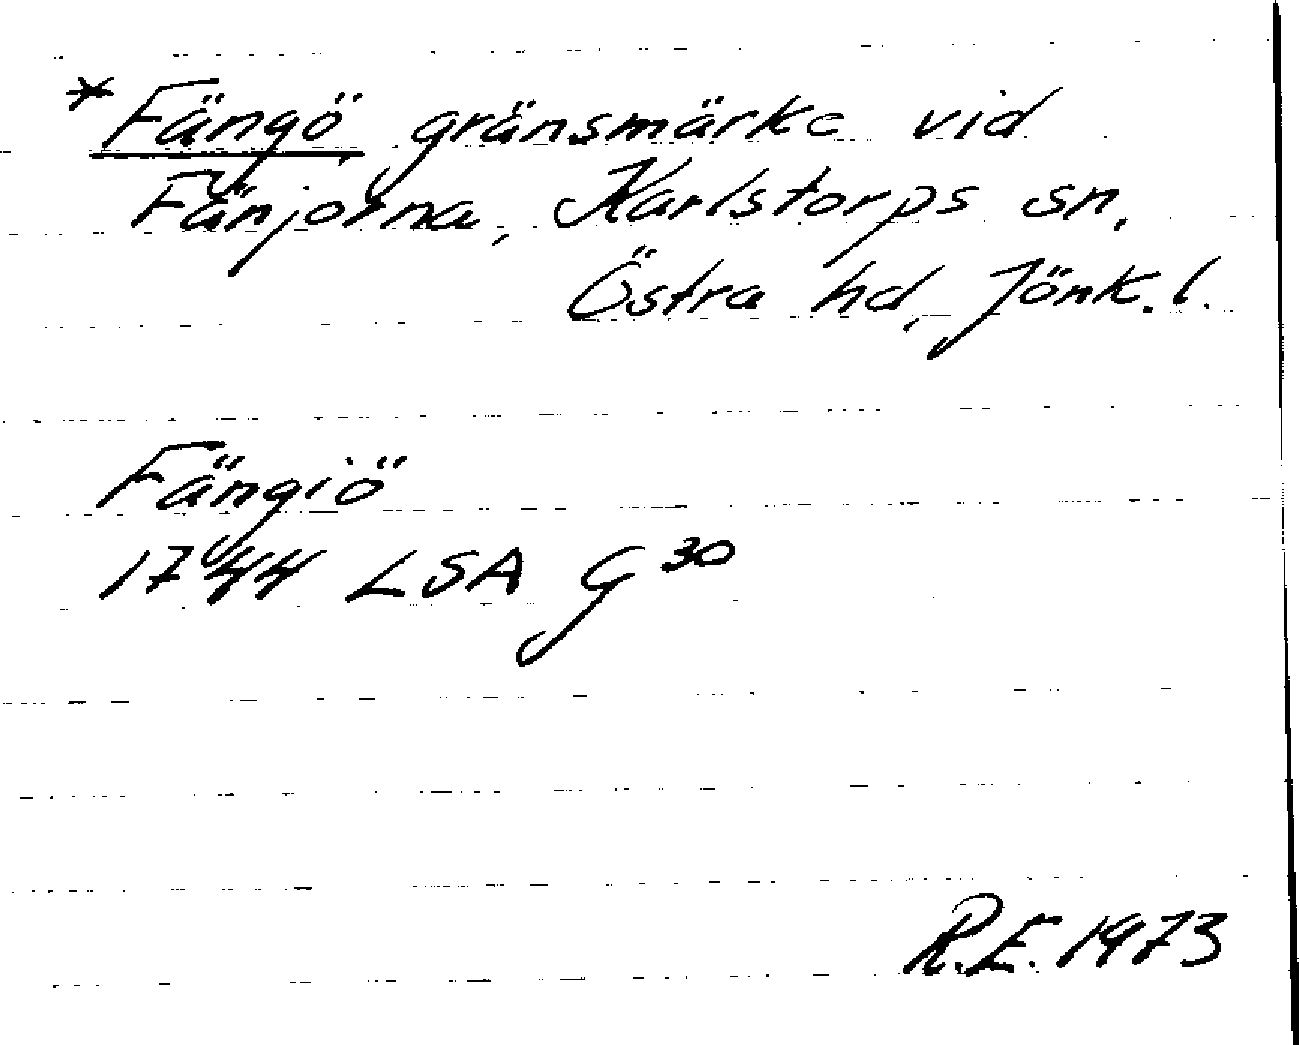 *Fängö, gränsmärke vid
Fänjorna, Karlstorps sn,
Östra hd, Jönk. l.
Fängiö
1744 LSA G 30
R.E. 1973